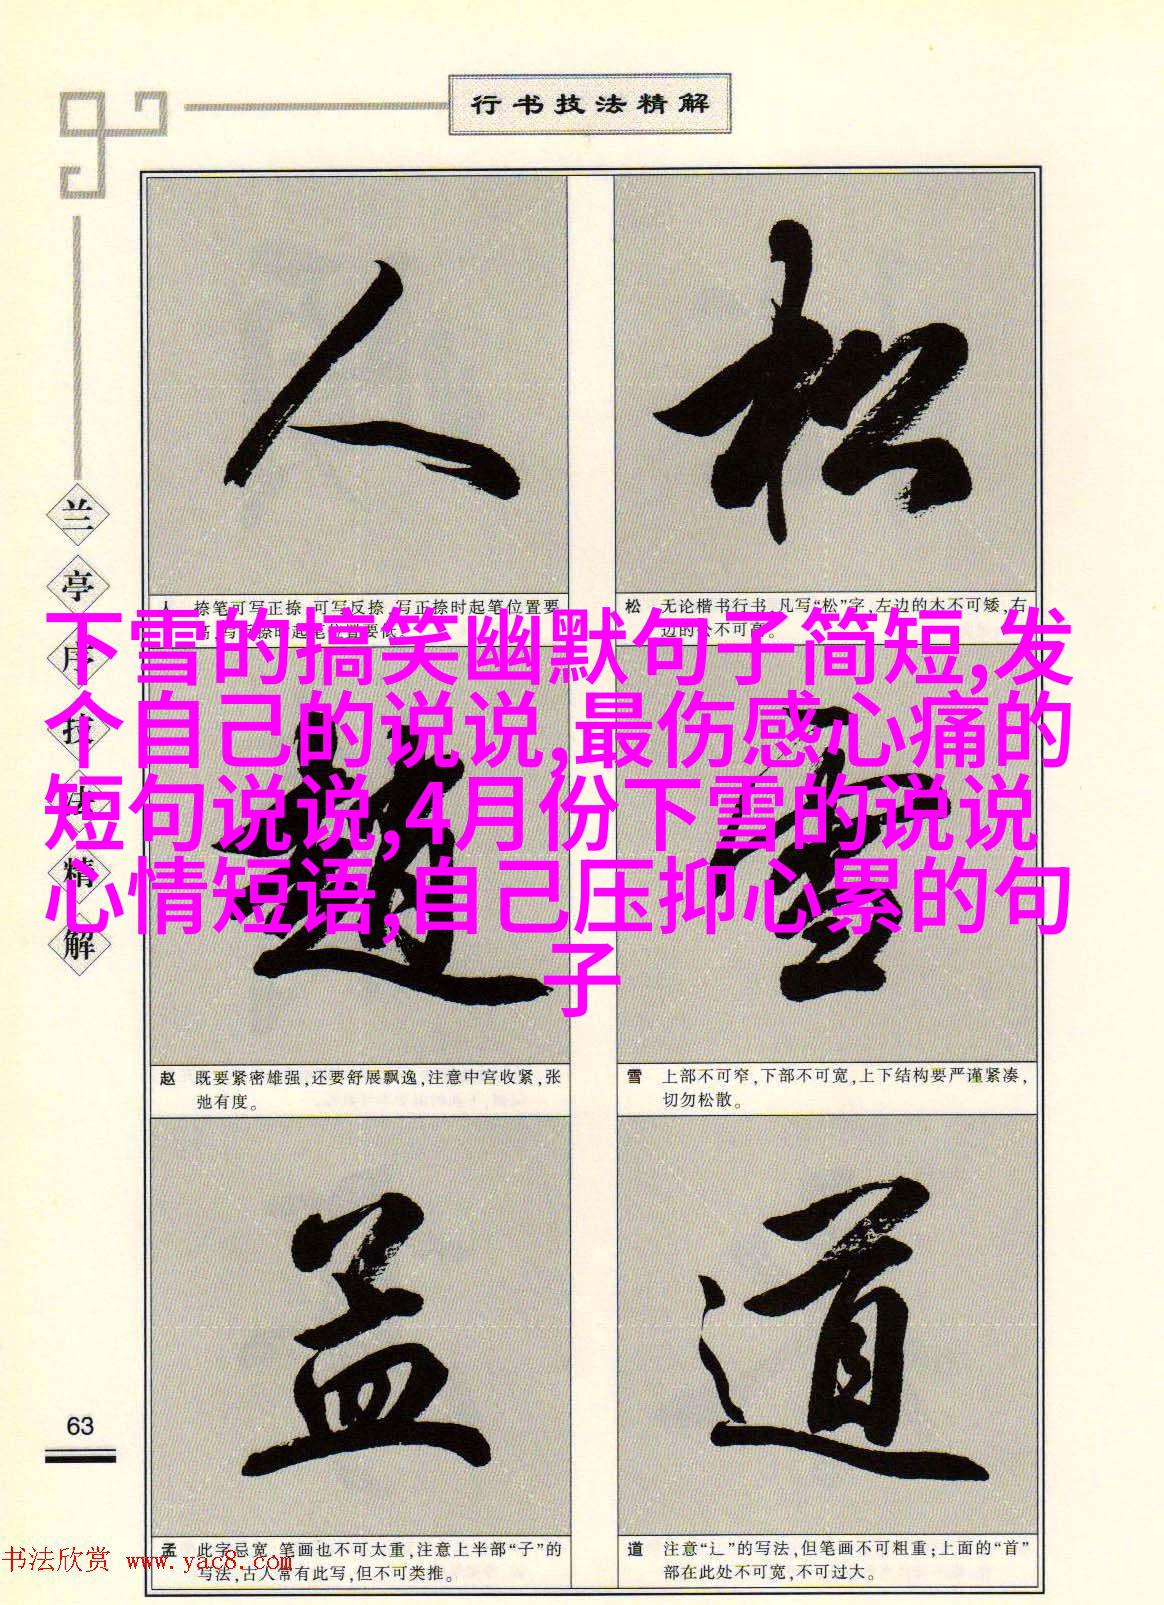 行书技法精解
兰亭序技法精解
人
松
人 捺笔可写正捺,可写反捺,写正捺时起笔位置要
高,写反捺时起笔位置要低。
松 无论楷书行书,凡写“松”字,左边的木不可矮,右
边的公不可高。
下雪的搞笑幽默句子简短,发
个自己的说说,最伤感心痛的
短句说说,4月份下雪的说说
心情短语,自己压抑心累的句
子
赵
雪
赵 既要紧密雄强,还要舒展飘逸,注意中宫收紧,张
弛有度。
雪 上部不可窄,下部不可宽,上下结构要严谨紧凑,
切勿松散。
孟
道
孟 此字忌宽,笔画也不可太重,注意上半部“子”的
写法,古人常有此写,但不可类推。
道 注意“辶”的写法,但笔画不可粗重;上面的“首”
部在此处不可宽,不可过大。
63
书法欣赏 www.yac8.com